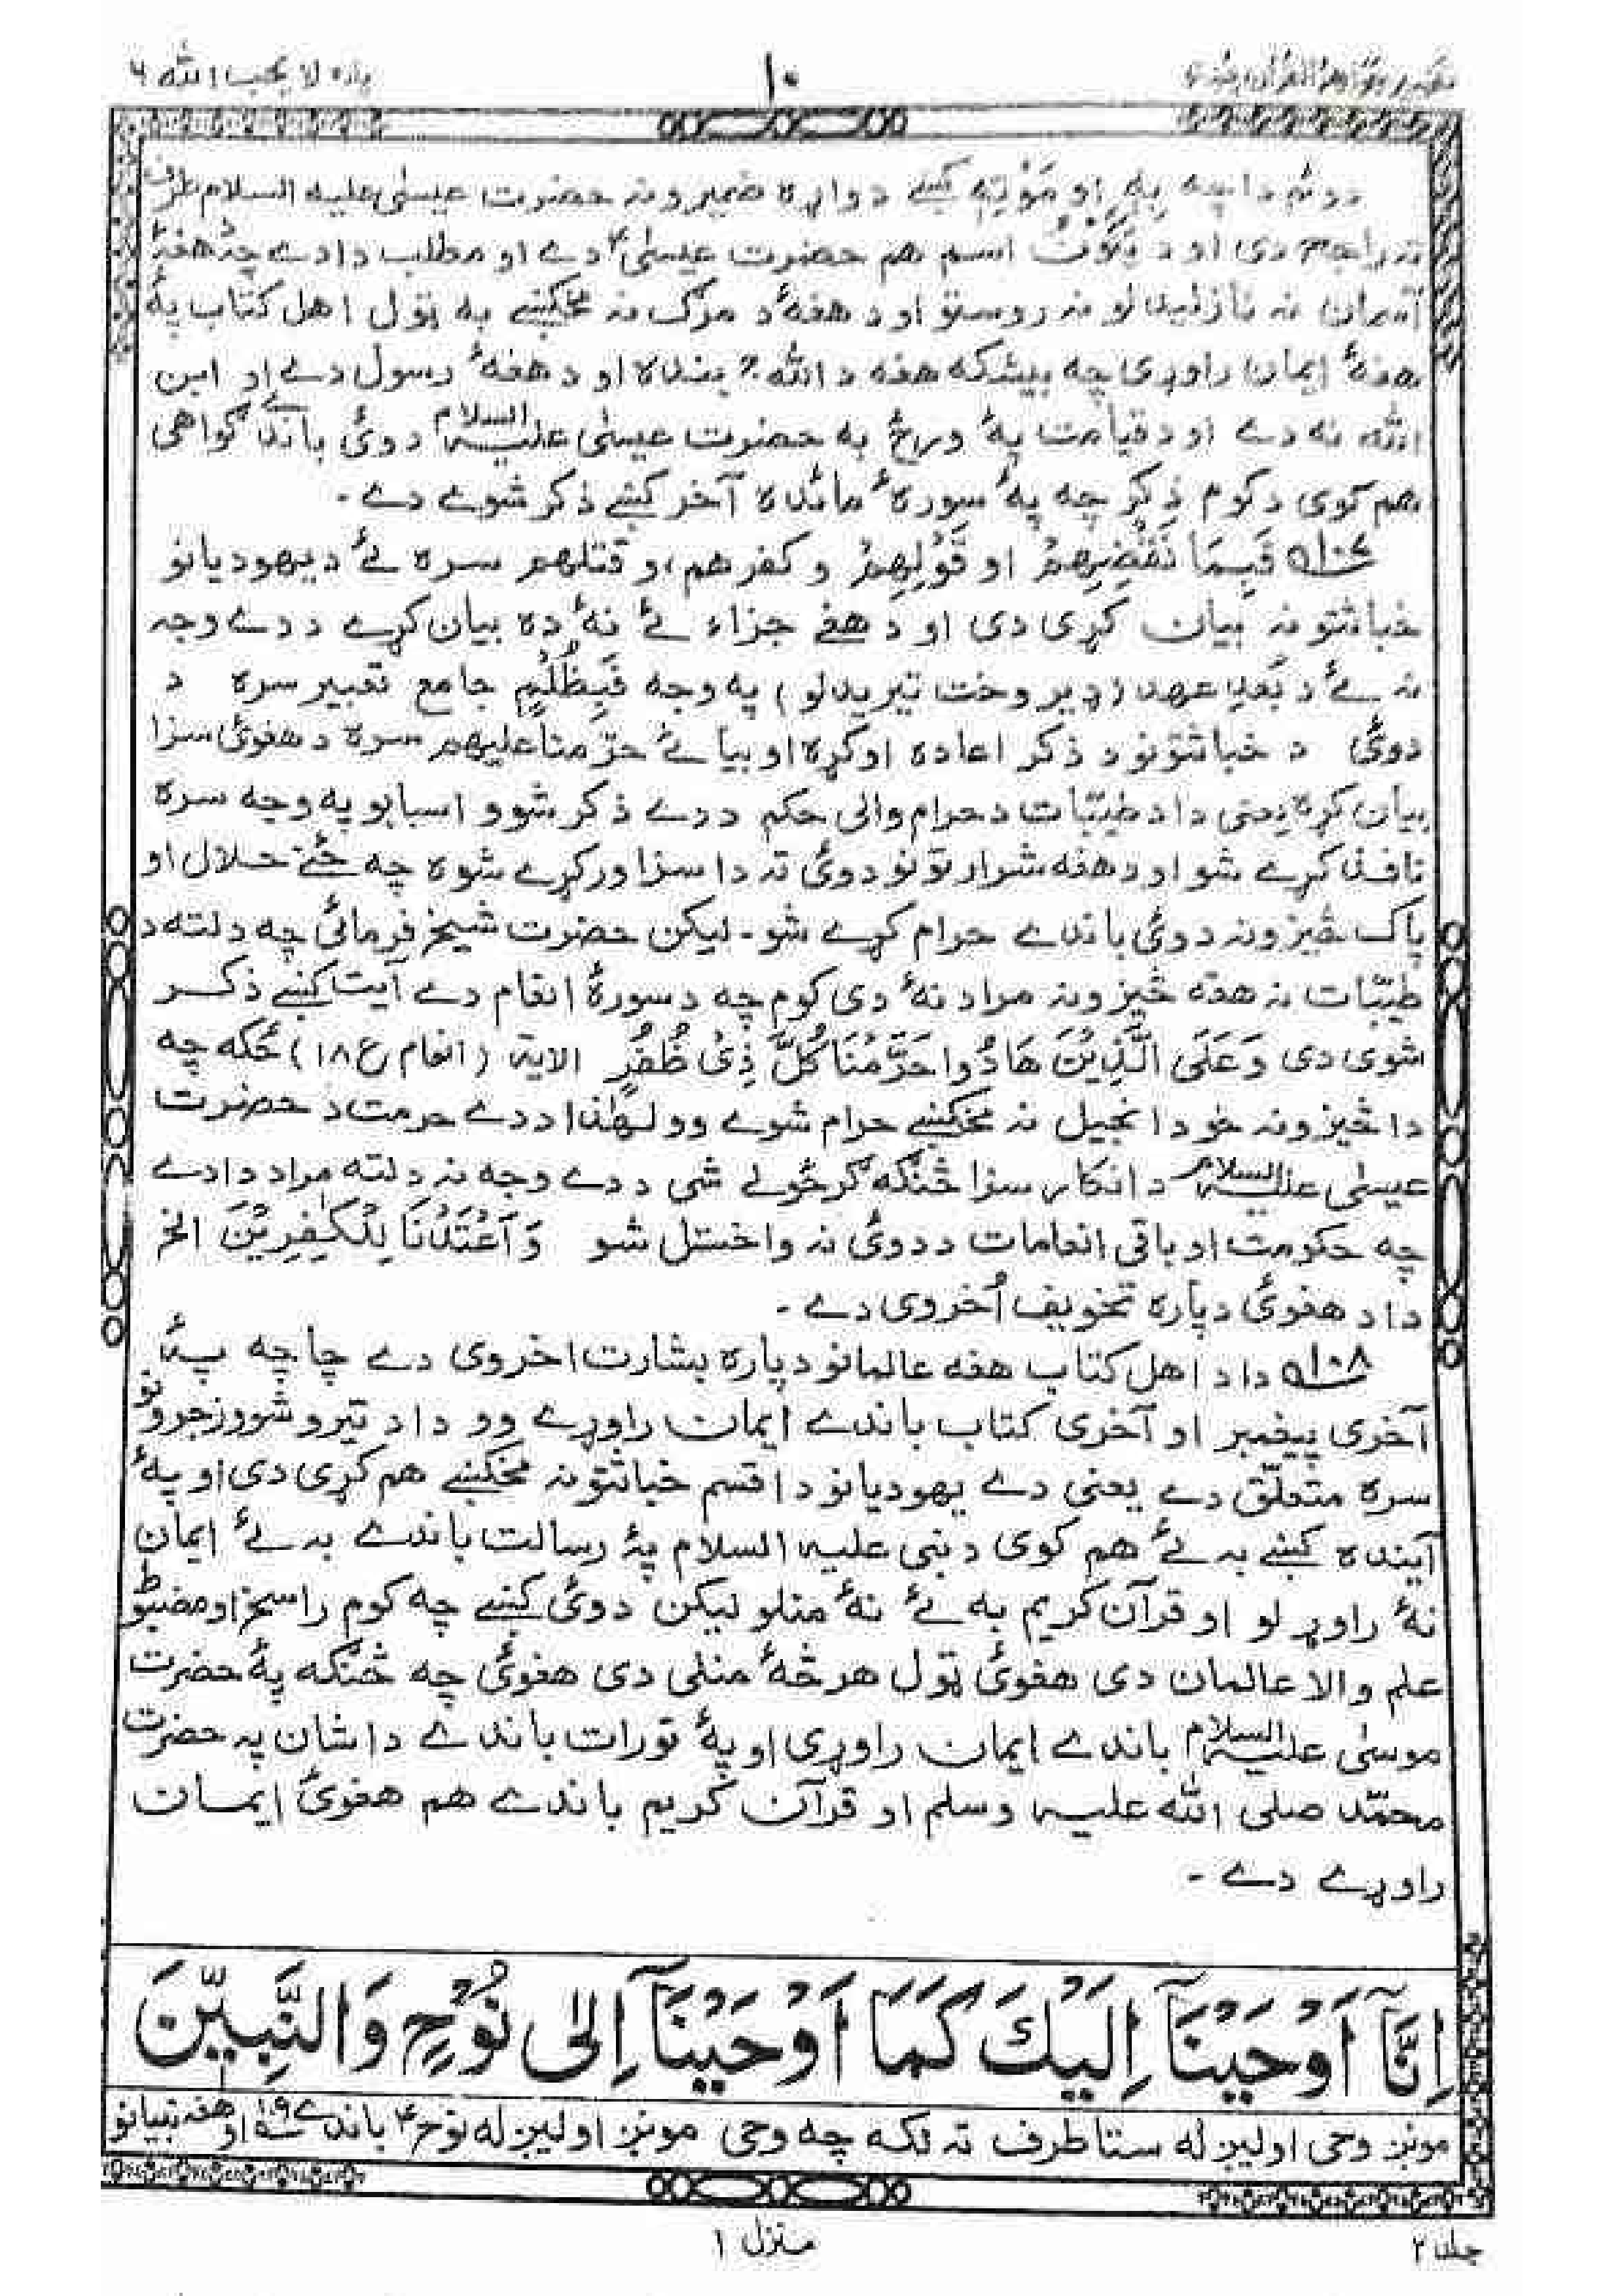 پاره لا يحب الله ٦
١٠
دوئم دا چه بِهٖ او مَوْتِهٖ کښے دواړه ضميرونه حضرت عيسىٰ عليه السلام طرف
ته راجع دى او د يَكُوْنُ اسم هم حضرت عيسىٰؑ دے او مطلب دا دے چه هغهٔ
آسمان نه نازليدالو نه روستو او د هغهٔ د مرګ نه مخکښے به ټول اهل کتاب پهٔ
هغهٔ ايمان راوړى چه بيشکه هغه د الله بنده او د هغهٔ رسول دے او ابن
الله نه دے او د قيامت پهٔ ورځ به حضرت عيسىٰ عليه السلام دوئ باندے ګواهى
هم کوى د کوم ذکر چه پهٔ سورهٔ مائده آخر کښے ذکر شوے دے -
١٠٧ فَبِمَا نَقْضِهِمْ او قَوْلِهِمْ و کفرهم، و قتلهم سره ئے د يهوديانو
خباثتونه بيان کړى دى او د هغے جزاء ئے نهٔ ده بيان کړے د دے وجه
نه ئے د بُعدِ عهد (ډير وخت تيريدلو) په وجه فَبِظُلْمٍ جامع تعبير سره د
دوئ د خباثتونو د ذکر اعاده اوکړه او بيا ئے حرّمنا عليهم سره د هغوئ سزا
بيان کړه يعنى دا د طيّبات د حرام والى حکم د دے ذکر شوو اسبابو په وجه سره
نافذ کړے شو او د هغه شرارتونو دوئ ته دا سزا ورکړے شوه چه ځنے حلال او
پاک څيزونه دوئ باندے حرام کړے شو - ليکن حضرت شيخ فرمائى چه دلته د
طيّبات نه هغه څيزونه مراد نهٔ دى کوم چه د سورهٔ انعام دے آيت کښے ذکر
شوى دى وَعَلَى الَّذِيْنَ هَادُوا حَرَّمْنَا كُلَّ ذِىْ ظُفُرٍ الاية (انعام ع ١٨) ځکه چه
دا څيزونه خو د انجيل نه مخکښے حرام شوے وو لهٰذا د دے حرمت د حضرت
عيسىٰ عليه السلام د انکار سزا څنګه ګرځولے شى د دے وجه نه دلته مراد دا دے
چه حکومت او باقى انعامات د دوئ نه واخستل شو وَاَعْتَدْنَا لِلْكٰفِرِيْنَ الخ
دا د هغوئ دپاره تخويف اُخروى دے -
١٠٨ دا د اهل کتاب هغه عالمانو دپاره بشارت اخروى دے چا چه پهٔ
آخرى پيغمبر او آخرى کتاب باندے ايمان راوړے وو دا د تيرو شوو زجرونو
سره متعلّق دے يعنى دے يهوديانو دا قسم خباثتونه مخکښے هم کړى دى او پهٔ
آينده کښے به ئے هم کوى د نبى عليه السلام پهٔ رسالت باندے به ئے ايمان
نهٔ راوړلو او قرآن کريم به ئے نهٔ منلو ليکن دوئ کښے چه کوم راسخ او مضبوط
علم والا عالمان دى هغوئ ټول هر څهٔ منلى دى هغوئ چه څنګه پهٔ حضرت
موسىٰ عليه السلام باندے ايمان راوړى او پهٔ تورات باندے دا شان په حضرت
محمّد صلى الله عليه وسلم او قرآن کريم باندے هم هغوئ ايمان
راوړے دے -
اِنَّآ اَوْحَيْنَآ اِلَيْكَ كَمَا اَوْحَيْنَآ اِلٰى نُوْحٍ وَالنَّبِيّٖنَ
مونږ وحى اوليږله ستا طرف ته لکه چه وحى مونږ اوليږله نوحؑ باندے ١٠٩ او هغه نبيانو
منزل ١
جلد ٢